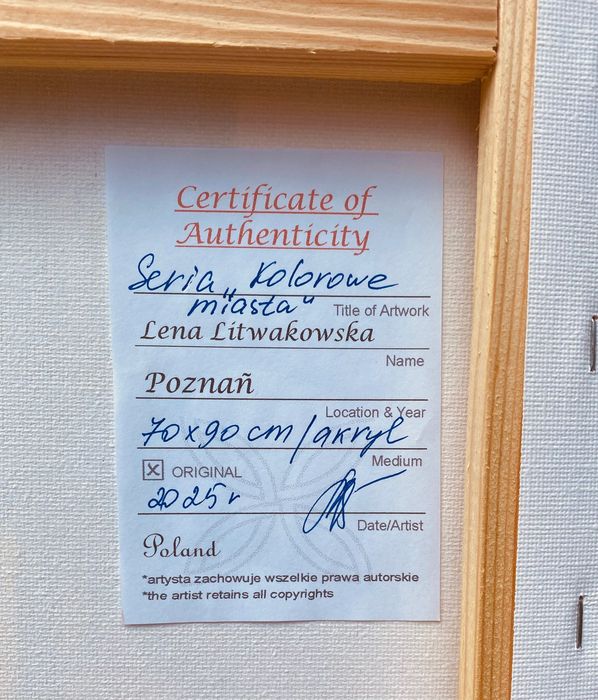 Certificate of
Authenticity
Seria „Kolorowe
miasta"
Title of Artwork
Lena Litwakowska
Name
Poznañ
Location & Year
70x90 cm/akryl
Medium
☒ ORIGINAL
2025 r
Date/Artist
Poland
*artysta zachowuje wszelkie prawa autorskie
*the artist retains all copyrights